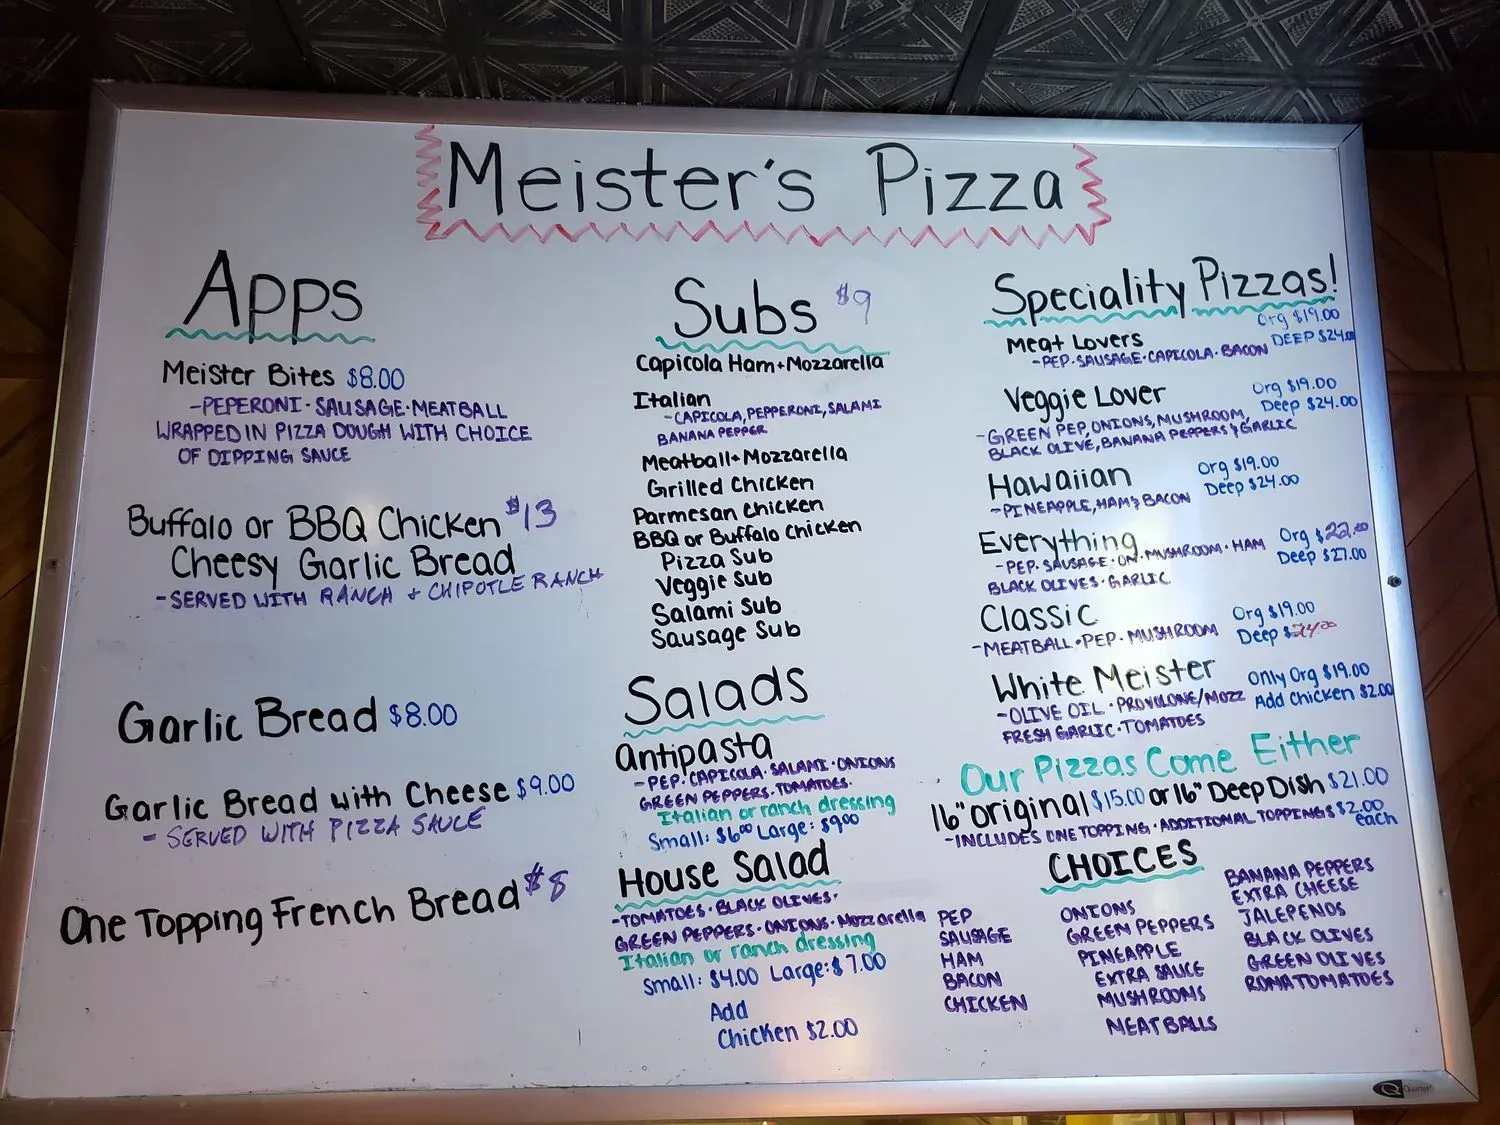 Meister's Pizza
Apps
Meister Bites $8.00
-PEPERONI·SAUSAGE·MEATBALL
WRAPPED IN PIZZA DOUGH WITH CHOICE
OF DIPPING SAUCE
Buffalo or BBQ Chicken $13
Cheesy Garlic Bread
-SERVED WITH RANCH + CHIPOTLE RANCH
Garlic Bread $8.00
Garlic Bread with Cheese $9.00
- SERVED WITH PIZZA SAUCE
One Topping French Bread $8
Subs $9
Capicola Ham+Mozzarella
Italian
-CAPICOLA, PEPPERONI, SALAMI
BANANA PEPPER
Meatball+Mozzarella
Grilled Chicken
Parmesan Chicken
BBQ or Buffalo Chicken
Pizza Sub
Veggie Sub
Salami Sub
Sausage Sub
Salads
Antipasta
-PEP·CAPICOLA·SALAMI·ONIONS
GREEN PEPPERS·TOMATOES·
Italian or ranch dressing
Small: $6.00 Large: $9.00
House Salad
-TOMATOES·BLACK OLIVES·
GREEN PEPPERS·ONIONS·Mozzarella
Italian or ranch dressing
Small: $4.00 Large: $7.00
Add
Chicken $2.00
Speciality Pizzas!
Meat Lovers Org $19.00
-PEP·SAUSAGE·CAPICOLA·BACON DEEP $24.00
Veggie Lover Org $19.00
Deep $24.00
-GREEN PEP, ONIONS, MUSHROOM,
BLACK OLIVE, BANANA PEPPERS & GARLIC
Hawaiian Org $19.00
-PINEAPPLE, HAM & BACON Deep $24.00
Everything Org $22.00
-PEP·SAUSAGE·ON·MUSHROOM·HAM Deep $27.00
BLACK OLIVES·GARLIC
Classic Org $19.00
-MEATBALL·PEP·MUSHROOM Deep $24.00
White Meister Only Org $19.00
-OLIVE OIL·PROVOLONE/MOZZ Add Chicken $2.00
FRESH GARLIC·TOMATOES
Our Pizzas Come Either
16" original $15.00 or 16" Deep Dish $21.00
-INCLUDES ONE TOPPING·ADDITIONAL TOPPINGS $2.00
each
CHOICES
PEP
SAUSAGE
HAM
BACON
CHICKEN
ONIONS
GREEN PEPPERS
PINEAPPLE
EXTRA SAUCE
MUSHROOMS
MEATBALLS
BANANA PEPPERS
EXTRA CHEESE
JALEPENOS
BLACK OLIVES
GREEN OLIVES
ROMATOMATOES
Quartet